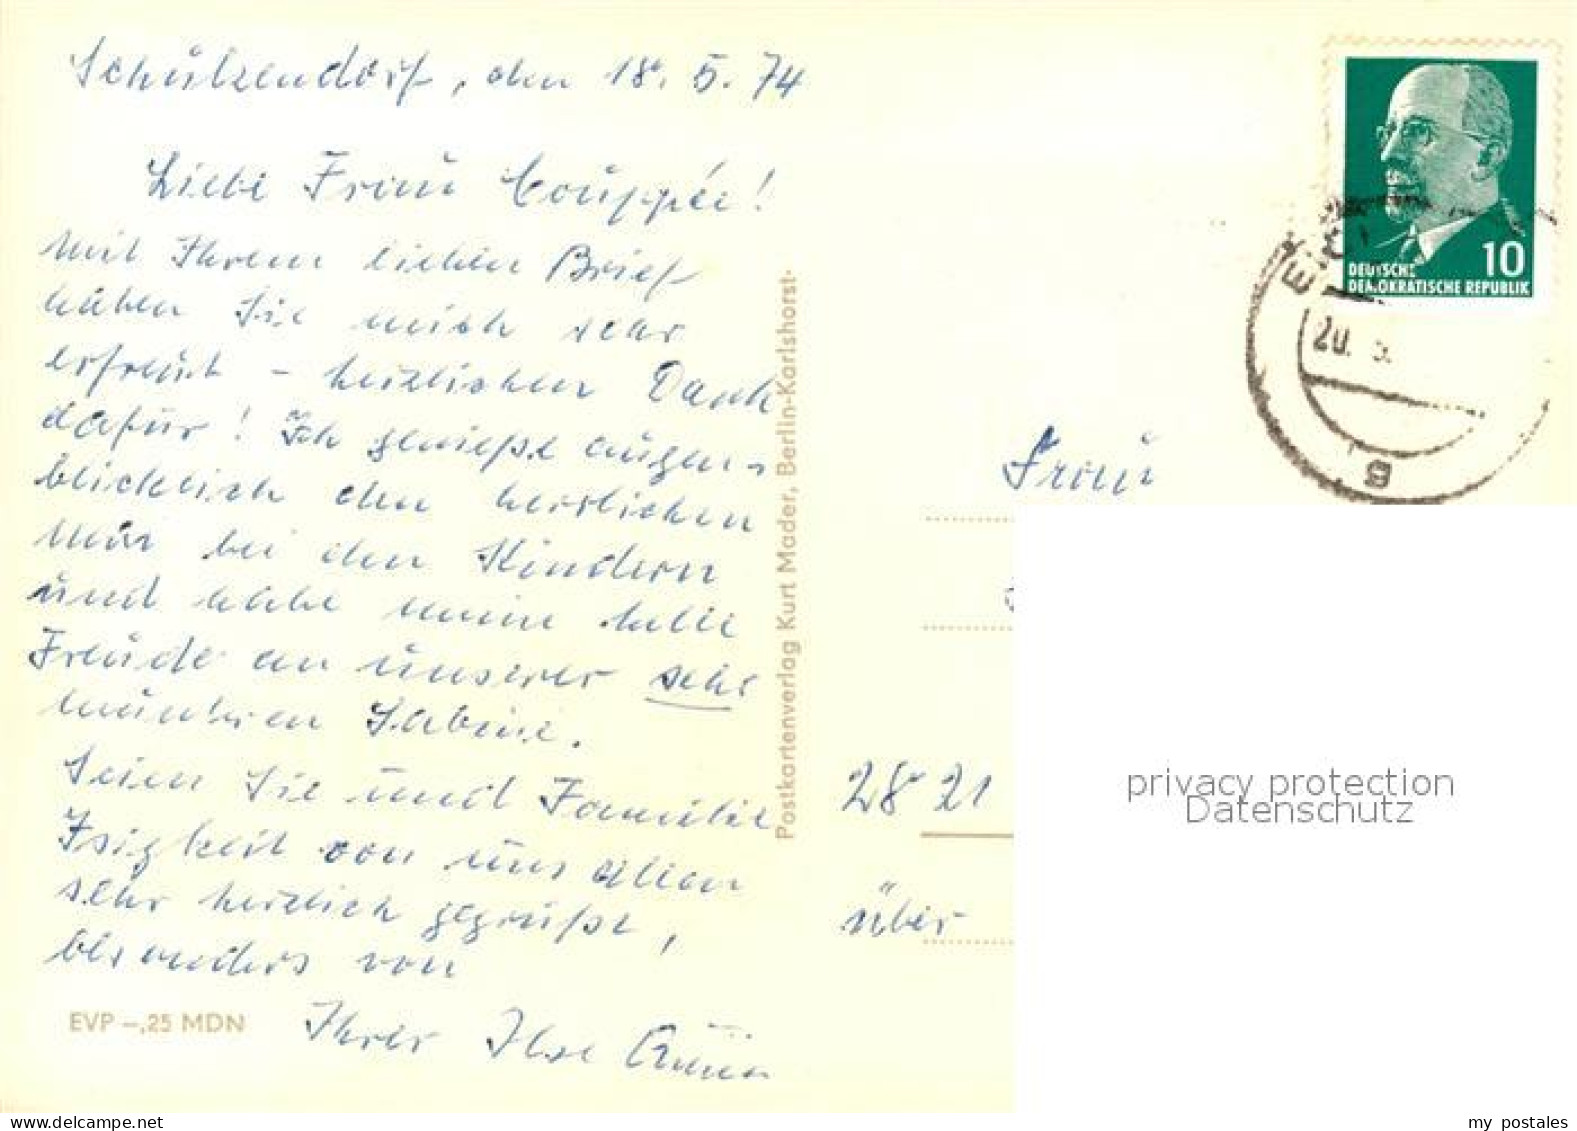 Schulzendorf, den 18. 5. 74
Liebe Frau Couppée!
mit Ihrem lieben Brief
haben Sie mich sehr
erfreut - herzlichen Dank
dafür! Ich genieße augen-
blicklich den herrlichen
Mai bei den Kindern
und habe meine helle
Freude an unserer sehr
munteren Sabine.
Seien Sie und Familie
von uns allen
sehr herzlich gegrüßt,
besonders von
Ihrer Ilse
EVP -,25 MDN
Postkartenverlag Kurt Mader, Berlin-Karlshorst
10
DEUTSCHE
DEMOKRATISCHE REPUBLIK
20. 5.
B
Frau
2821
über
privacy protection
Datenschutz
my postales